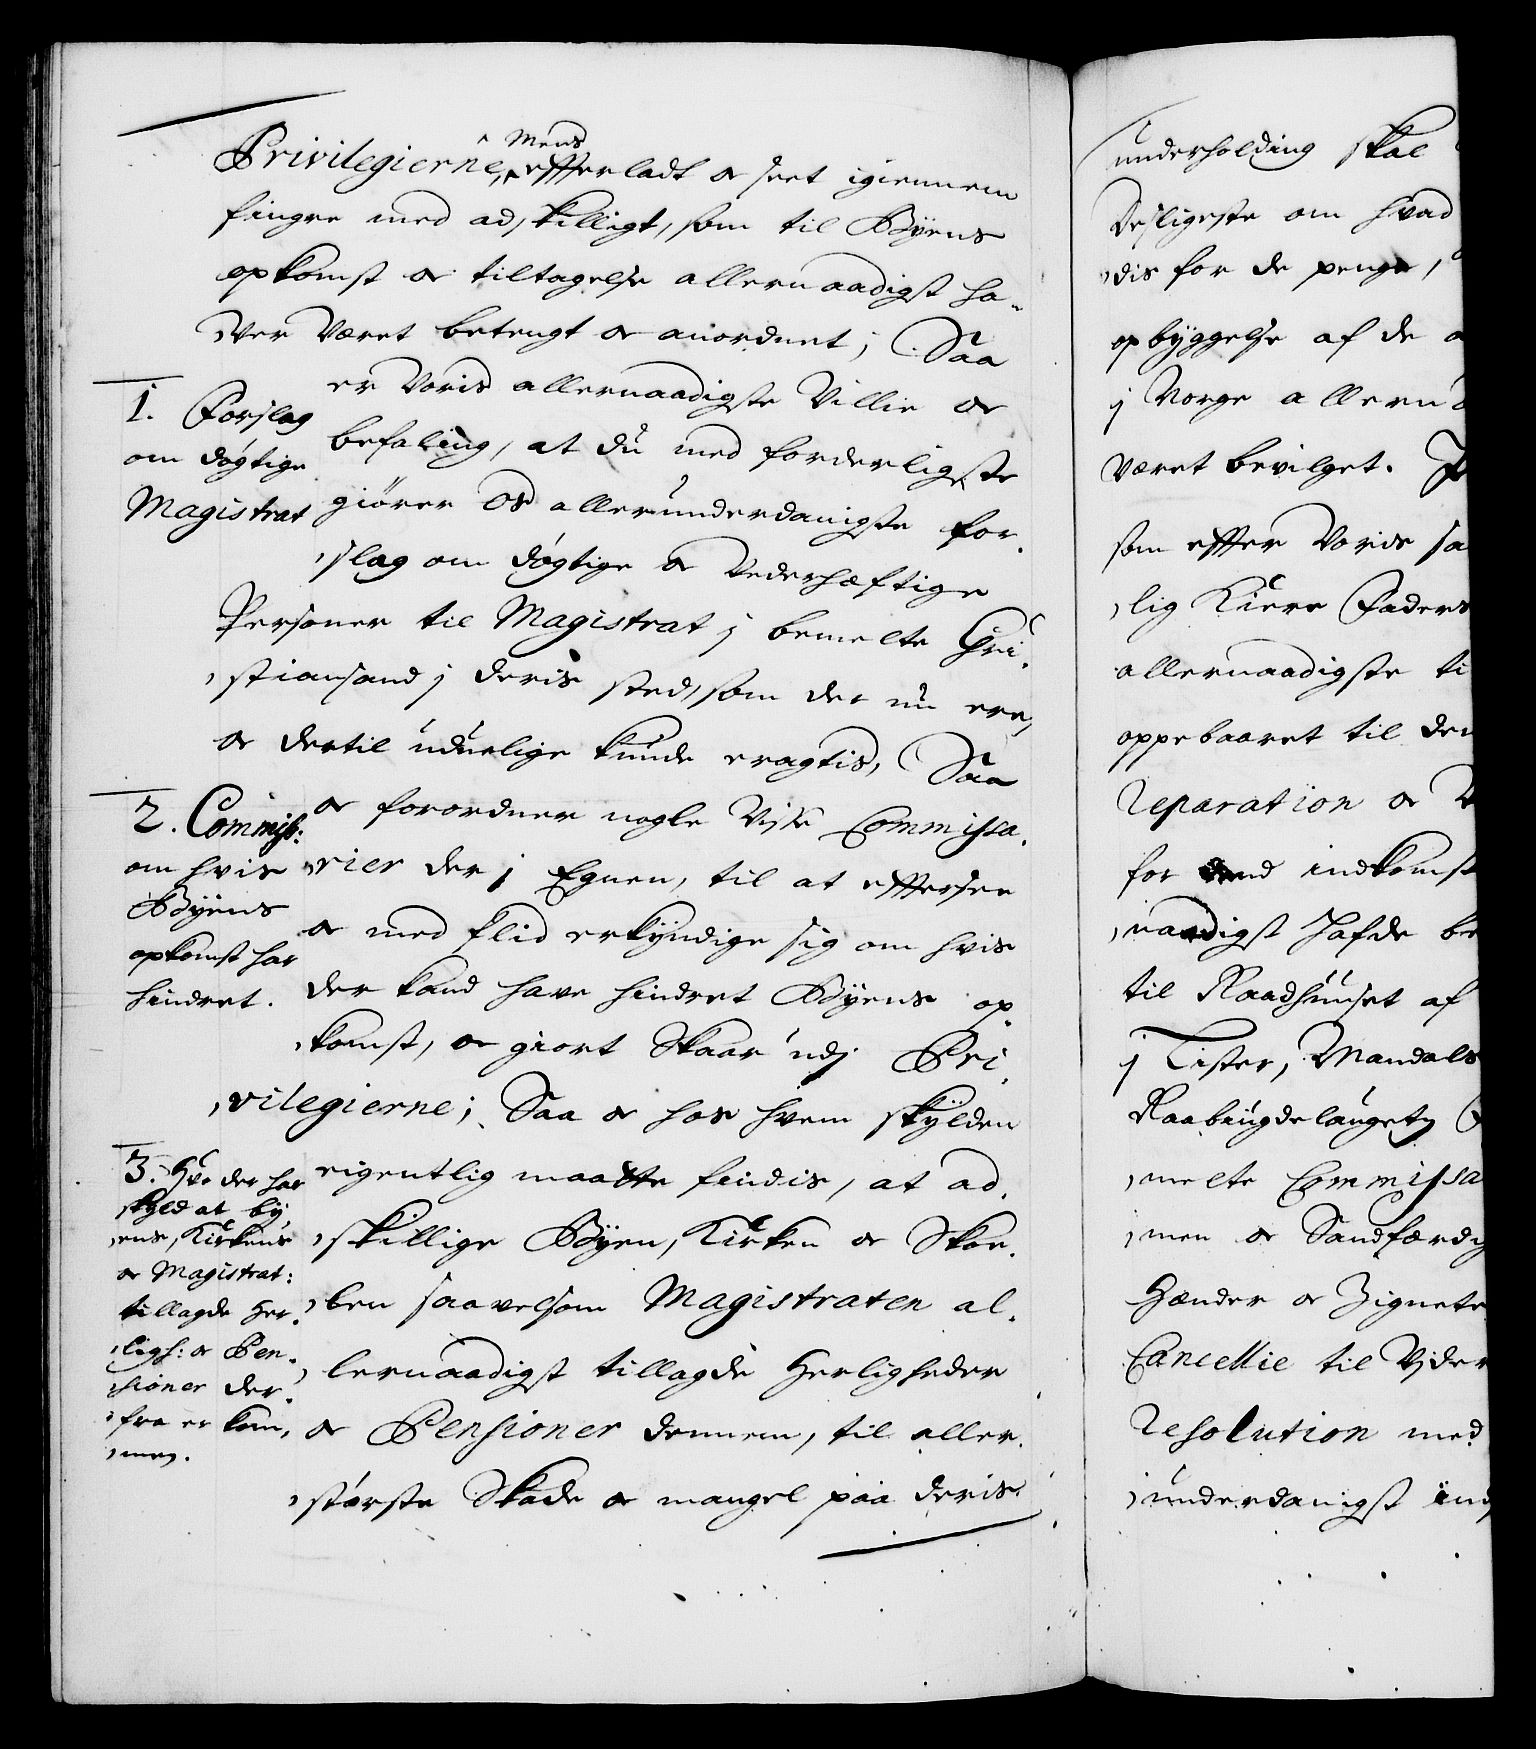 Privilegierne, Mens effterladt oc seet igiennem
fingre med adskilligt, som til Byens
opkomst oc tiltagelse allernaadigst ha-
ver Været betengt oc anordnet; Saa
er Voris allernaadigste Villie oc
befaling, at du med forderligste
giörer Os allerunderdanigste for-
slag om døgtige oc Vederhæftige
Personer til Magistrat j bemelte Chri-
stiansand j deris sted, som der nu ere,
oc dertil uduelige kunde eragtis, Saa
oc forordner nogle Visse Commissa-
rier der j Egnen, til at effersee
oc med flid erkyndige sig om hvis
der kand have hindret Byens op-
komst, oc giort Skaar udj Pri-
vilegierne; Saa oc hos hvem skylden
eigentlig maatte findis, at ad-
skillige Byen, Kirken oc Skoe-
len saavelsom Magistraten al-
lernaadigst tillagde Herligheder
oc Pensioner dennem, til aller-
störste Skade oc mangel paa deris
1. Forslag
om døgtige
Magistrat
2. Commiss:
om hvis
Byens
opkomst har
hindret.
3. Hvo der har
skyld at by
ens, Kirkens
oc Magistrat:
tillagde Her-
ligh: oc Pen-
sioner der-
fra er kom-
men.
underholding skal
Desligeste om hvad
dis for de penge,
opbyggelse af de
j Norge allern
Været bevilget.
som effter Voris sa
lig Kiere Faders
allernaadigste ti
oppebaaret til den
Reparation oc
for dend indkomst
naadigst hafde be
til Raadhuuset af
j Lister, Mandals
Raabiugdelauget
melte Commissa
men oc Sandfærdig
Hænder oc Zignete
Cancellie til Vider
Resolution med
underdanigst ind